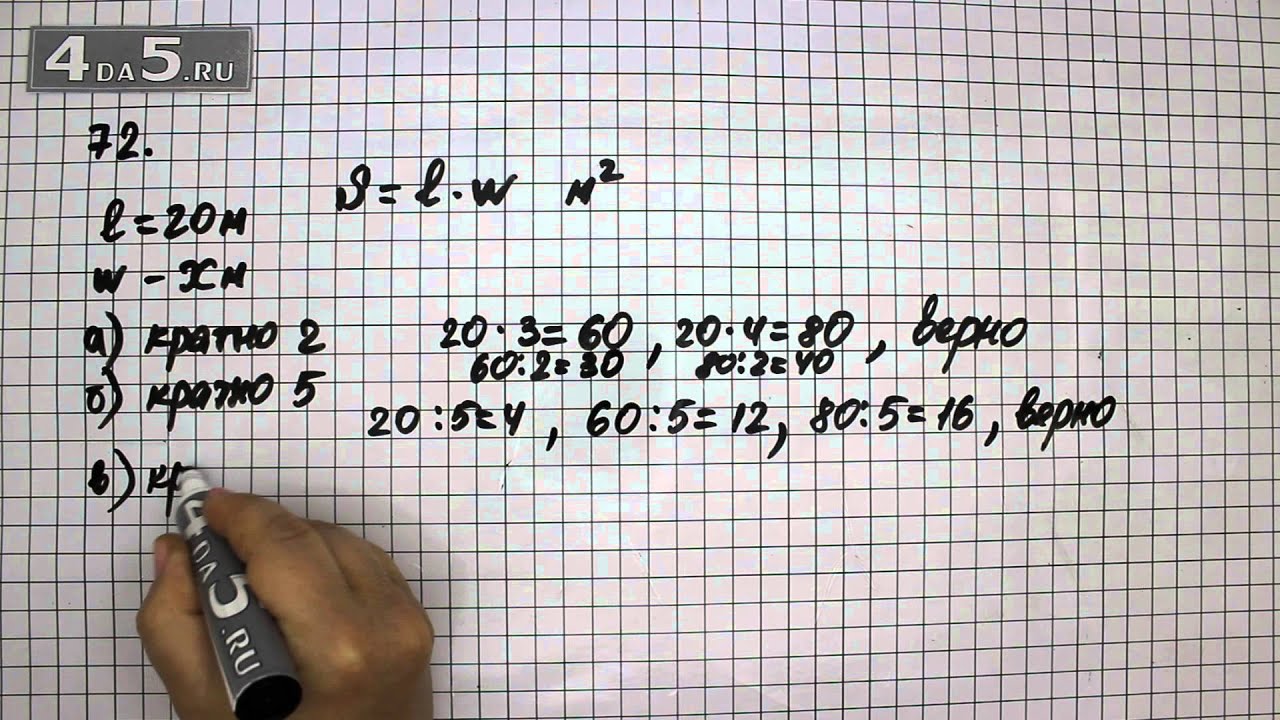 4DA5.RU
72.
S = l · w м²
l = 20м
w – x м
а) кратно 2 20 · 3 = 60 , 20 · 4 = 80 , верно
60:2=30 80:2=40
б) кратно 5 20:5=4 , 60:5=12, 80:5=16 , верно
в) кр
4DA5.RU